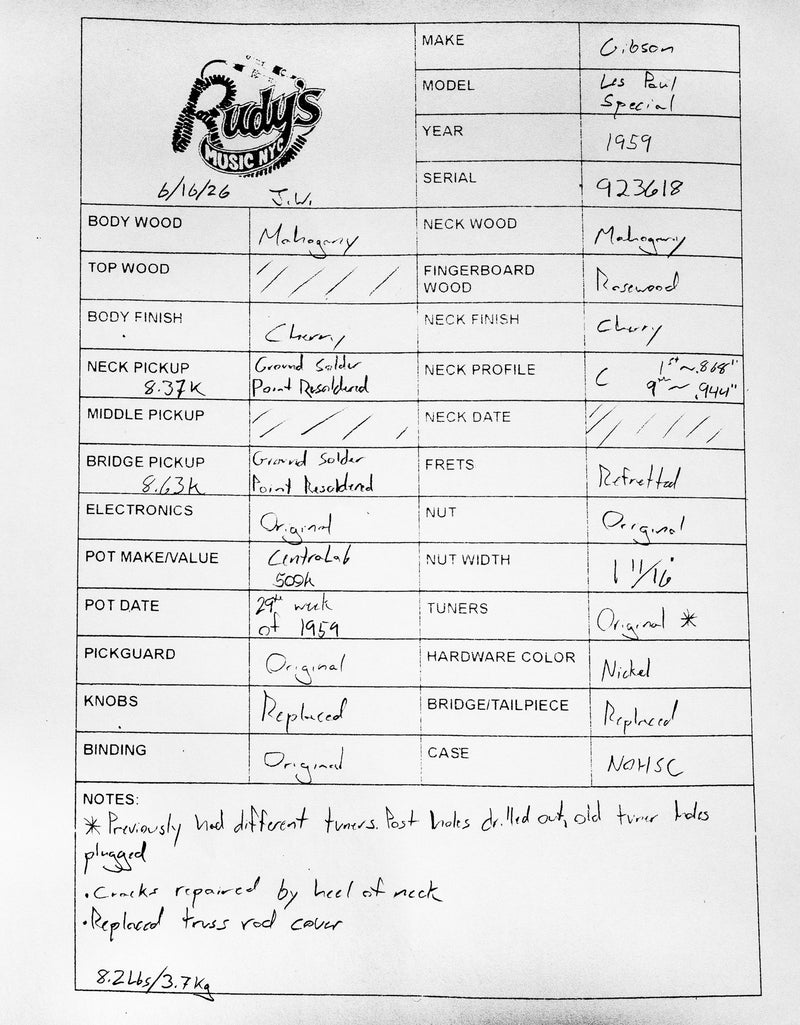 Rudy's
MUSIC NYC
6/16/26 J.W.
MAKE Gibson
MODEL Les Paul
Special
YEAR 1959
SERIAL 923618
BODY WOOD Mahogany
NECK WOOD Mahogany
TOP WOOD
FINGERBOARD
WOOD Rosewood
BODY FINISH Cherry
NECK FINISH Cherry
NECK PICKUP Ground Solder
8.37K Point Resoldered
NECK PROFILE C 1st ~.868"
9th ~ .944"
MIDDLE PICKUP
NECK DATE
BRIDGE PICKUP Ground Solder
8.63K Point Resoldered
FRETS Refretted
ELECTRONICS Original
NUT Original
POT MAKE/VALUE Centralab
500k
NUT WIDTH 1 11/16"
POT DATE 29th week
of 1959
TUNERS Original *
PICKGUARD Original
HARDWARE COLOR Nickel
KNOBS Replaced
BRIDGE/TAILPIECE Replaced
BINDING Original
CASE NOHSC
NOTES:
* Previously had different tuners. Post holes drilled out, old tuner holes
plugged
• Cracks repaired by heel of neck
• Replaced truss rod cover
8.2 Lbs/3.7Kg